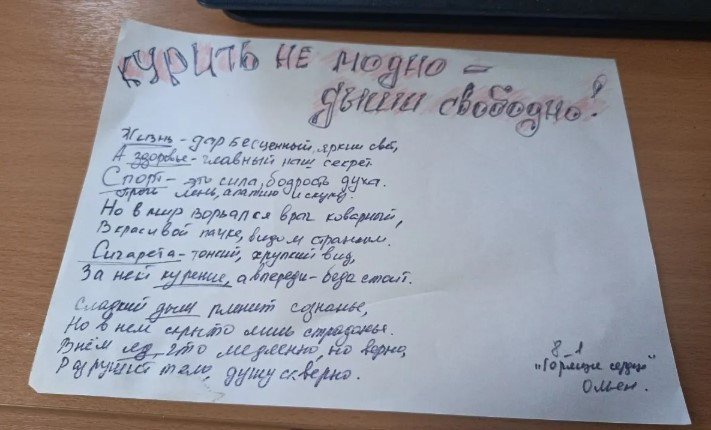 КУРИТЬ НЕ МОДНО –
ДЫШИ СВОБОДНО!
Жизнь – дар бесценный, яркий свет,
А здоровье – главный наш секрет.
Спорт – это сила, бодрость духа.
лень, апатию и скуку.
Но в мир ворвался враг коварный,
В красивой пачке, видом странным.
Сигарета – тонкий, хрупкий вид,
За ней курение, а впереди – беда стоит.
Сладкий дым пленит сознанье,
Но в нем скрыто лишь страданье.
В нём яд, что медленно, но верно,
Разрушит тело, душу скверно.
8-1
"Горящие сердца"